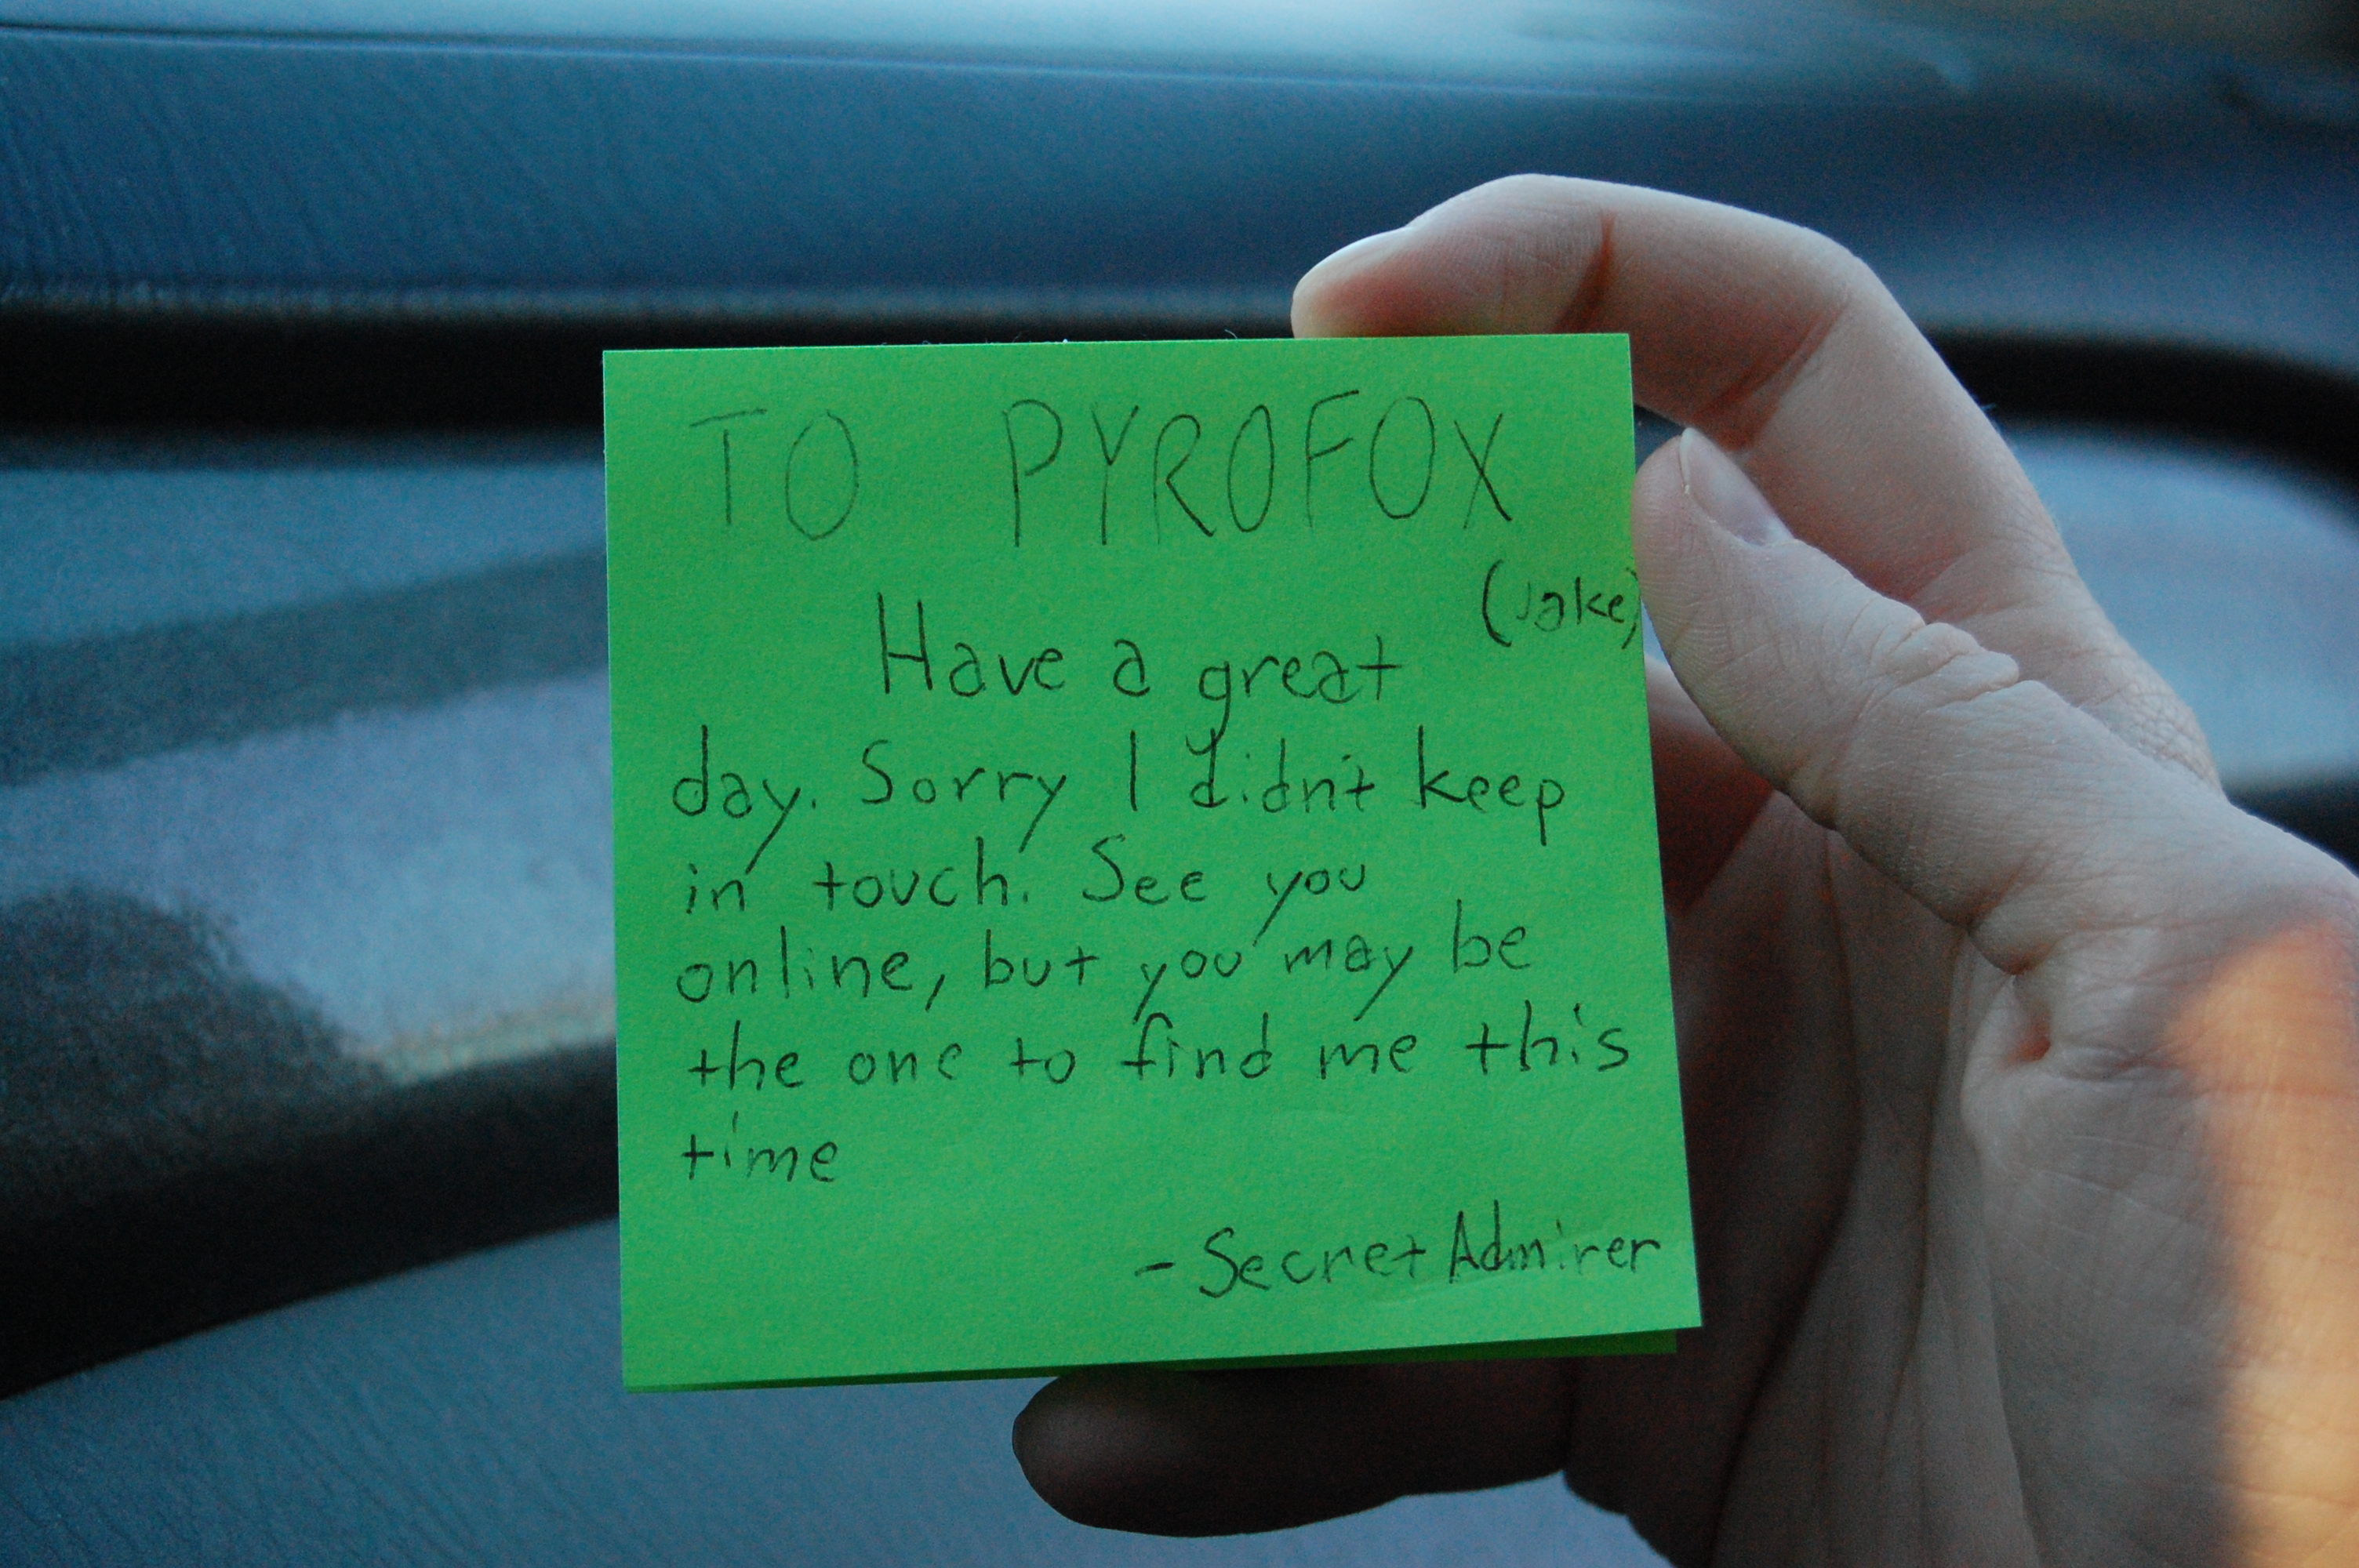 TO PYROFOX
(Jake)
Have a great
day. Sorry I didn't keep
in touch. See you
online, but you may be
the one to find me this
time
- Secret Admirer